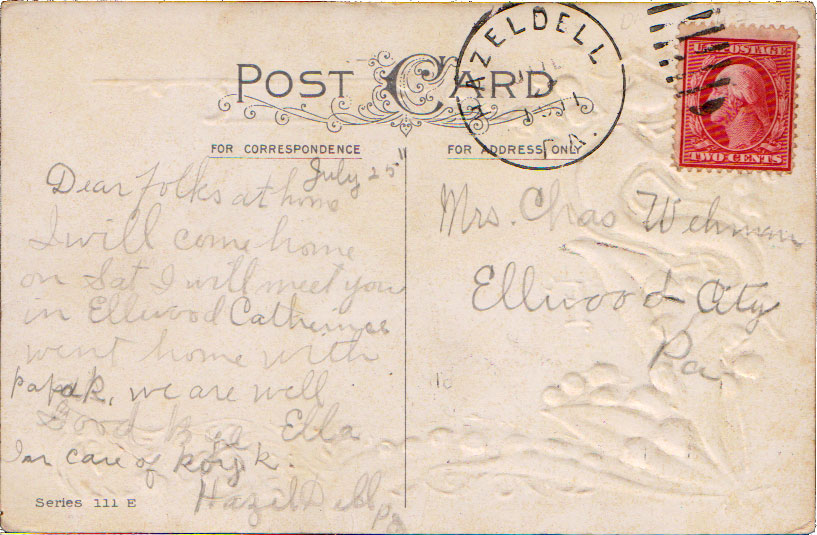 POST CARD
HAZELDELL
JUL
1911
PA.
U.S. POSTAGE
TWO CENTS
FOR CORRESPONDENCE
FOR ADDRESS ONLY
July 25 11
Dear folks at home
I will come home
on Sat I will meet you
in Ellwood Catherine
went home with
we are well
Good bye Ella
In care of
Hazel Dell Pa
Series 111 E
Mrs. Chas Wehman
Ellwood City
Pa
10